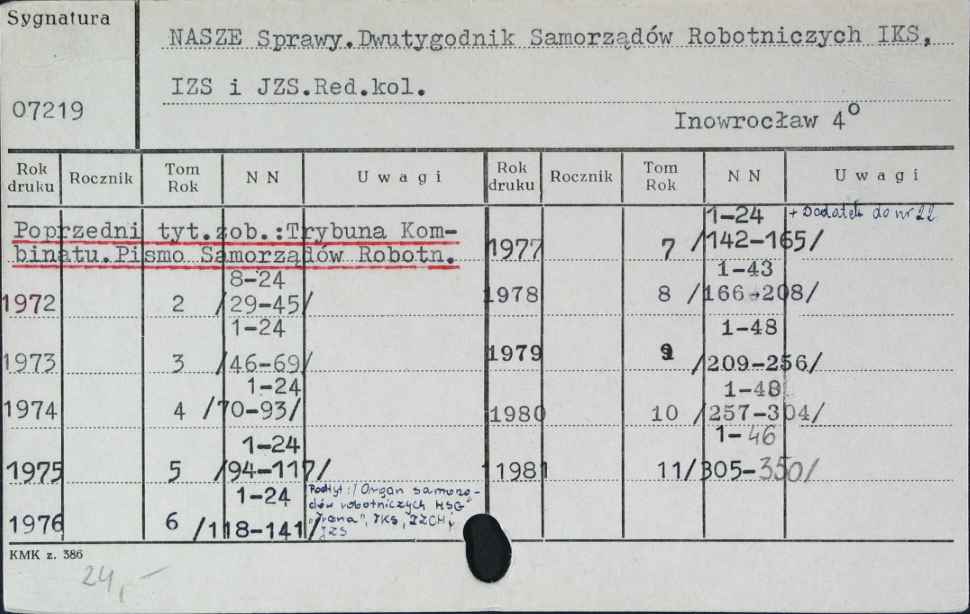 Sygnatura
NASZE Sprawy.Dwutygodnik Samorządów Robotniczych IKS,
IZS i JZS.Red.kol.
07219
Inowrocław 4°
Rok druku Rocznik Tom Rok NN Uwagi Rok druku Rocznik Tom Rok NN Uwagi
Poprzedni tyt.zob.:Trybuna Kom-
binatu.Pismo Samorządów Robotn.
8-24
1972 2 /29-45/
1-24
1973 3 /46-69/
1-24
1974 4 /70-93/
1-24
1975 5 /94-117/
1-24 Podtyt:/Organ samorzą-
dów robotniczych HSG
1976 6 /118-141/ "Irena", IKS, IZCH,
JZS
1-24 + Dodatek do nr 22
1977 7 /142-165/
1-43
1978 8 /166-208/
1-48
1979 9 /209-256/
1-48
1980 10 /257-304/
1-46
1981 11/305-350/
KMK z. 386
24,-